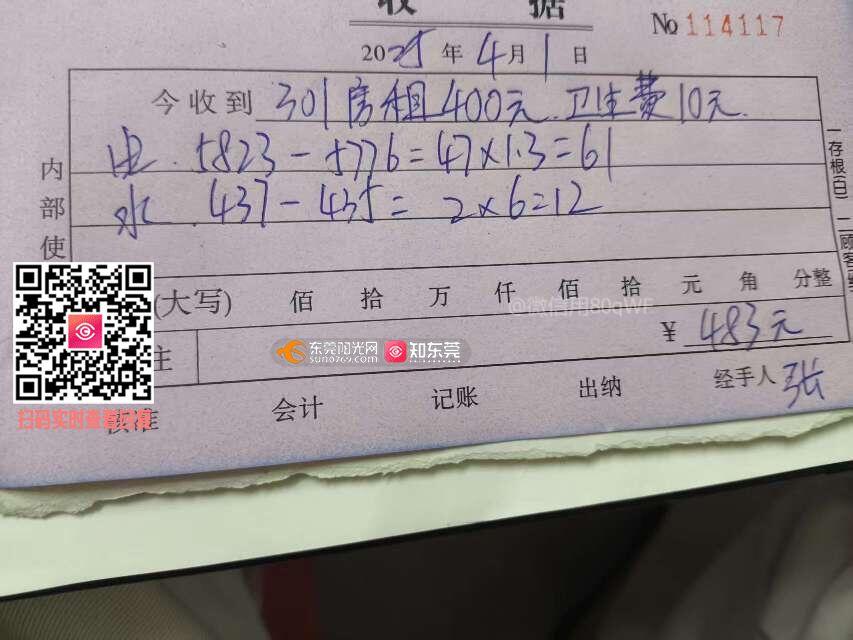 收 据
№ 114117
2025 年 4 月 1 日
今收到 301房租400元.卫生费10元.
电.5823-5776=47×1.3=61
水.437-435=2×6=12
内部使
一存根(白) 二顾客
(大写) 佰 拾 万 仟 佰 拾 元 角 分整
@微信用80qWF
¥ 483元
主
东莞阳光网 知东莞
sun0769.com
扫码实时查看回复
核准 会计 记账 出纳 经手人 张